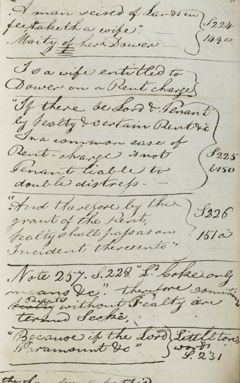 A man seised of Lands in
fee taketh a wife"
S 224
149 a
Moity of her Dower
Is a wife entitled to
Dower on a Rent charge
"If there be Lord & Tenant
by Fealty & certain Rent &c
In a common case of
Rent-charge is not
Tenant liable to
double distress —
S 225
b 150
"And therefore by the
grant of the Rent,
fealty shall pass as an
Incident thereunto"
S 226
151 a
Note 257. S. 228 "Ld Coke only
means &c", therefore
without Fealty are
termed Secke,
"Because if the Lord
Paramount &c"
Littleton's
words
S. 231